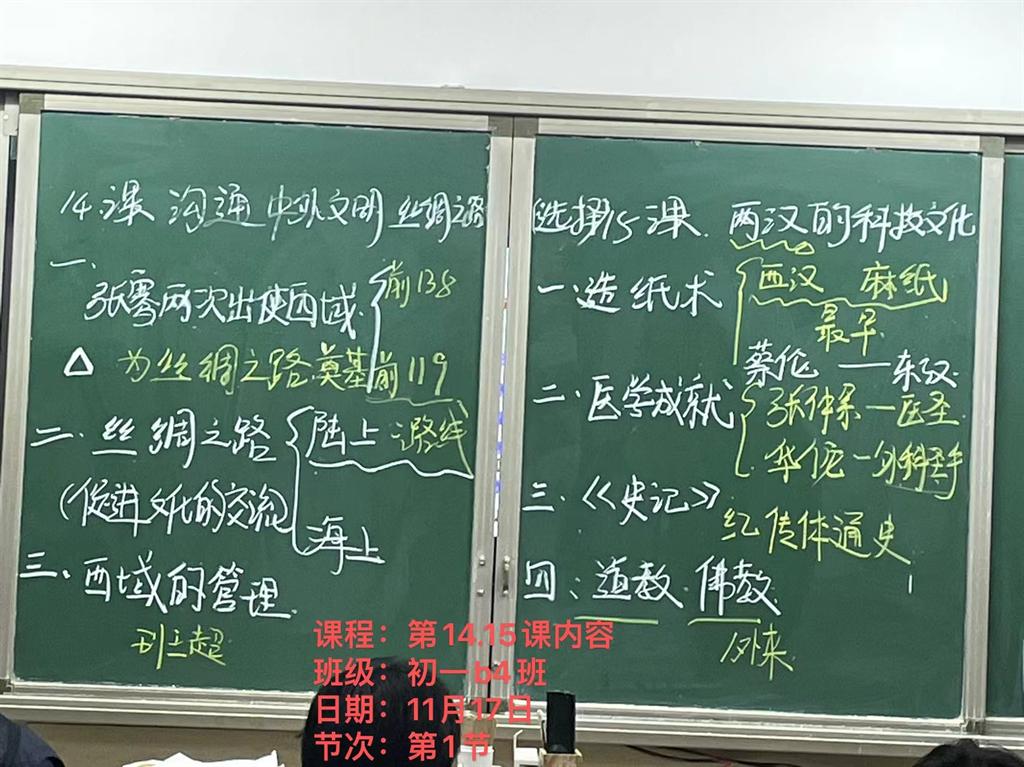 14.课 沟通中外文明 丝绸之路
一、
张骞两次出使西域
前138
△ 为丝绸之路奠基 前119
二、丝绸之路
陆上 路线
(促进文化的交流)
海上
三、西域的管理
班超
选择15课 两汉的科技文化
一、造纸术
西汉 麻纸
最早
蔡伦 — 东汉
二、医学成就
张仲景 — 医圣
华佗 — 外科圣手
三、《史记》
纪传体通史
四、道教、佛教
外来
课程：第14.15课内容
班级：初一b4班
日期：11月17日
节次：第1节